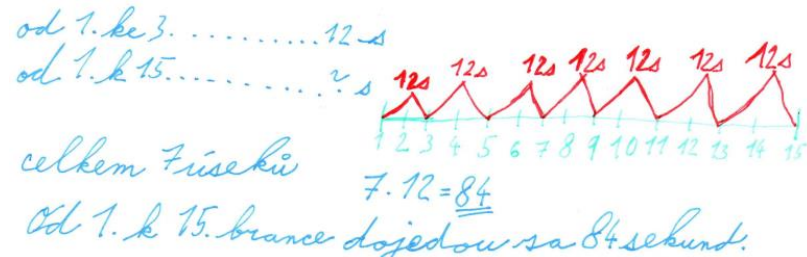 od 1. ke 3. . . . . . . . . . . 12 s
od 1. k 15. . . . . . . . . . . ? s
12s 12s 12s 12s 12s 12s 12s
1 2 3 4 5 6 7 8 9 10 11 12 13 14 15
celkem 7 úseků
7 . 12 = 84
Od 1. k 15. brance dojedou za 84 sekund.